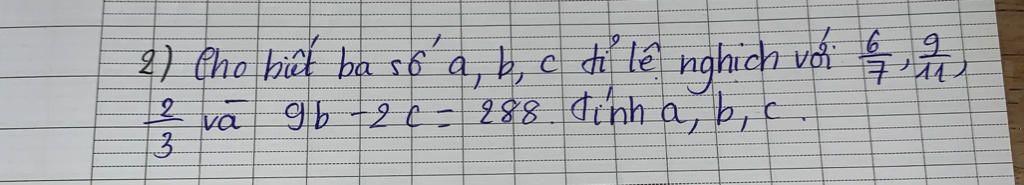 2) Cho biết ba số a, b, c tỉ lệ nghịch với 6/7, 9/11,
2/3 và 9b - 2c = 288. Tính a, b, c.